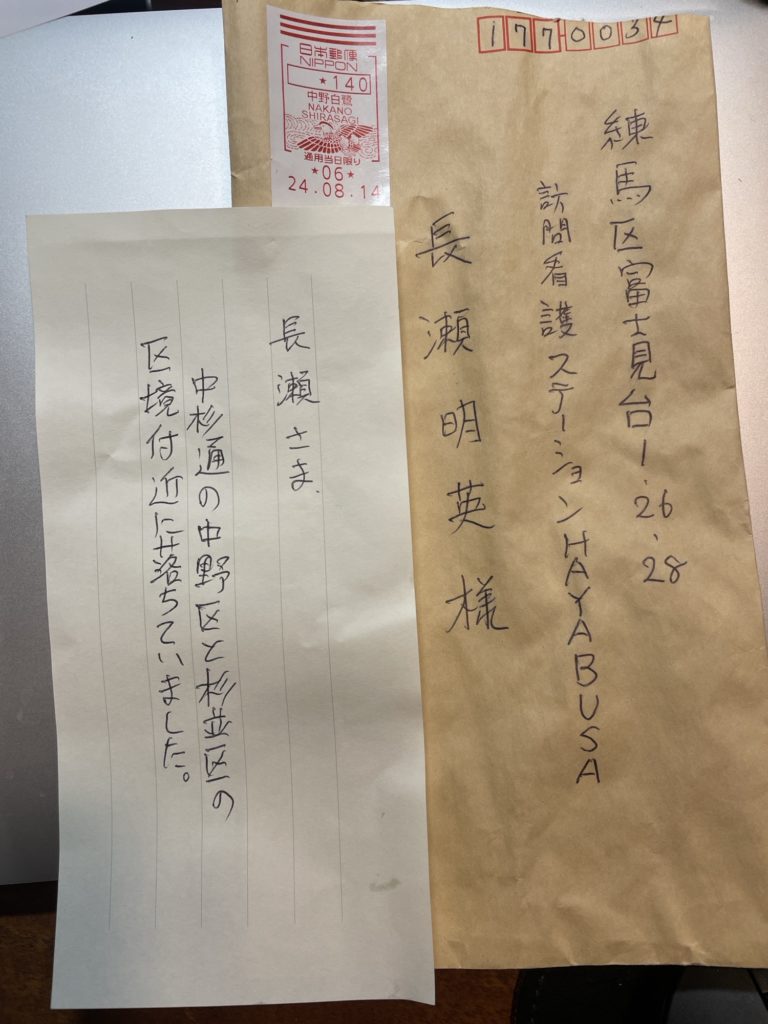 1770034
練馬区富士見台1、26、28
訪問看護ステーションHAYABUSA
長瀬明英様
日本郵便
NIPPON
★140
中野白鷺
NAKANO
SHIRASAGI
通用当日限り
★06★
24.08.14
長瀬さま、
中杉通の中野区と杉並区の
区境付近に落ちていました。